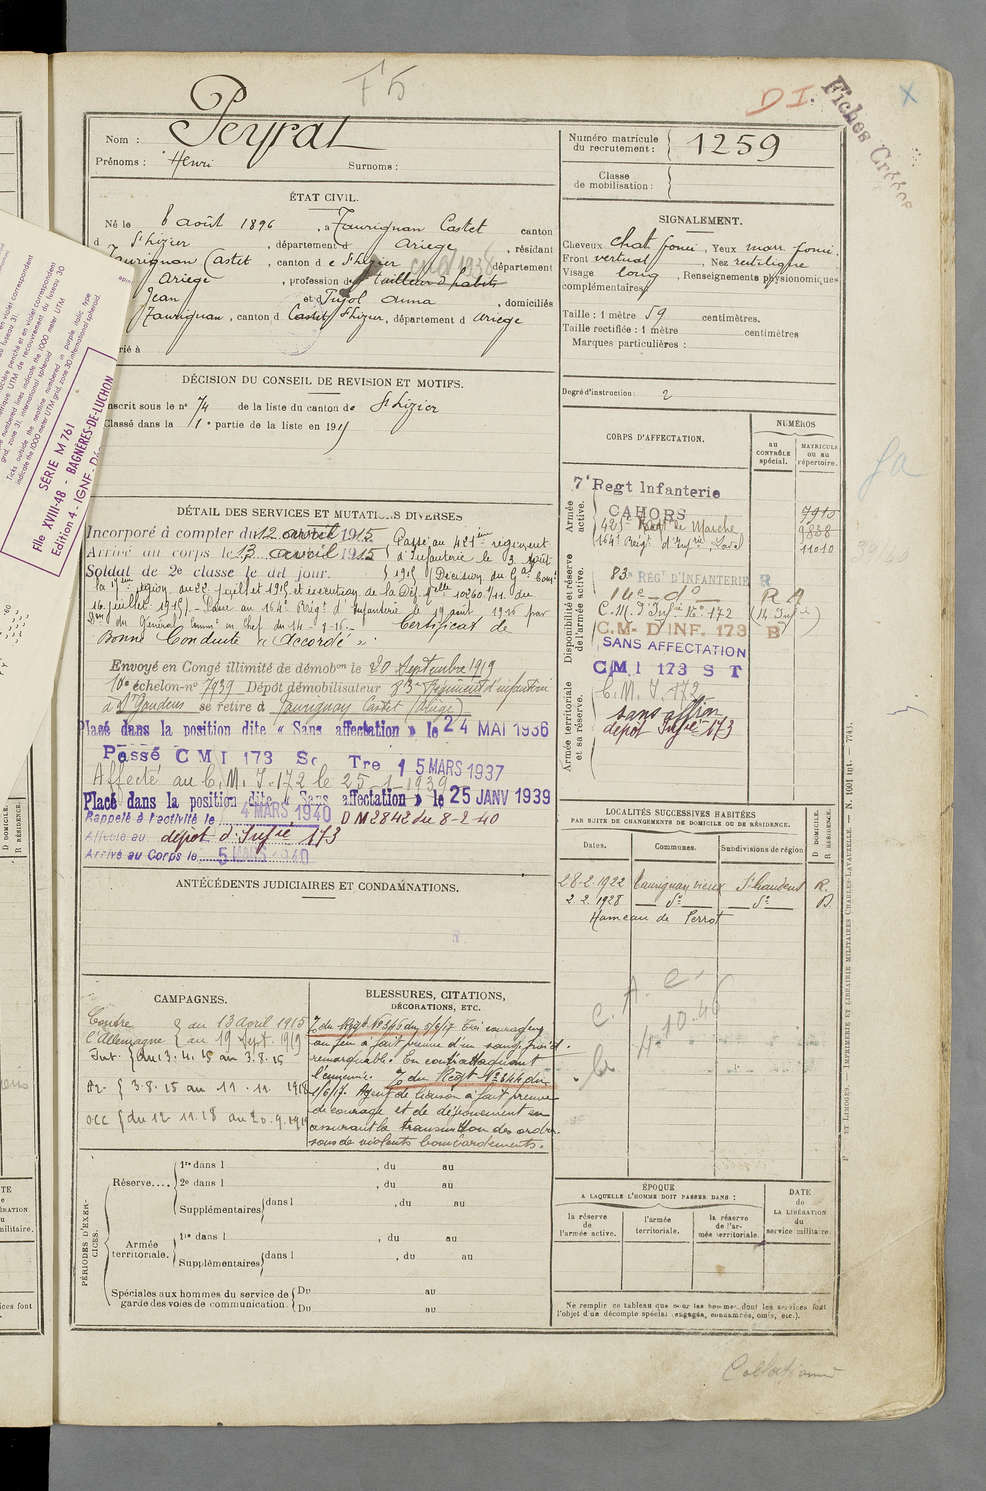 F 5
D I.
Fiches
X
Nom : Peyrat
Prénoms : Henri Surnoms :
Numéro matricule du recrutement : 1259
Classe de mobilisation :
ÉTAT CIVIL.
Né le 8 août 1896, à Taurignan Castet canton
d St Lizier, département d Ariege, résidant
Taurignan Castet, canton de St Lizier département
Ariege, profession de tailleur d'habits
Jean et d Pujol Anna, domiciliés
Taurignan, canton d Castet St Lizier, département d Ariege
rié à
SIGNALEMENT.
Cheveux chat. foncé, Yeux marr. foncé,
Front vertical, Nez rectiligne
Visage long, Renseignements physionomiques
complémentaires
Taille : 1 mètre 59 centimètres.
Taille rectifiée : 1 mètre centimètres
Marques particulières :
DÉCISION DU CONSEIL DE REVISION ET MOTIFS.
Inscrit sous le n° 74 de la liste du canton de St Lizier
Classé dans la 1e partie de la liste en 1915
Degré d'instruction : 2
CORPS D'AFFECTATION.
NUMÉROS
au CONTRÔLE spécial.
MATRICULE ou au répertoire.
Armée active.
7e Regt Infanterie
CAHORS
7915
421e Regt de Marche
9838
164e Régt d'Infrie, Laval
11010
Disponibilité et réserve de l'armée active.
83e REGt D'INFANTERIE R
14e - do - R A
C. M. d'Infie No 172
C.M. D'INF. 173 B
SANS AFFECTATION
CMI 173 S T
Armée territoriale et sa réserve.
C. M. I. 172
sans affon
depot Infie 173
DÉTAIL DES SERVICES ET MUTATIONS DIVERSES
Incorporé à compter du 12 avril 1915. Passé au 421ème régiment
Arrivé au corps le 13 avril 1915 d'Infanterie le 3 Août
Soldat de 2e classe le dit jour. 1915 (Décision du Gal Comt
la 17ème région du 22 juillet 1915 et exécution de la Dép. Mlle 10260.1/11 du
16 juillet 1915) - Passé au 164e Régt d'Infanterie le 19 août 1916 par
Don du Général Commt en Chef du 14-7-16 - Certificat de
Bonne Conduite "Accordé".
Envoyé en Congé illimité de démobon le 20 Septembre 1919
10e échelon - n° 7939 Dépôt démobilisateur 83e Régiment d'infanterie
à St Gaudens se retire à Taurignan Castet (Ariège)
Placé dans la position dite « Sans affectation » le 24 MAI 1936
Passé CMI 173 Son Tre 15 MARS 1937
Affecté au C. M. I. 172 le 25-1-1939
Placé dans la position dite « Sans affectation » le 25 JANV 1939
Rappelé à l'activité le 4 MARS 1940 D M 2842 du 8-2-40
Affecté au dépot d'Infie 173
Arrivé au Corps le 5 MARS 1940
LOCALITÉS SUCCESSIVES HABITÉES
PAR SUITE DE CHANGEMENTS DE DOMICILE OU DE RÉSIDENCE.
Dates. Communes. Subdivisions de région D DOMICILE. R RÉSIDENCE.
28-2-1922 Taurignan vieux St Gaudens R.
2-2-1928 do do D.
Hameau de Perrot
ANTÉCÉDENTS JUDICIAIRES ET CONDAMNATIONS.
CAMPAGNES.
Contre l'Allemagne { du 13 avril 1915 au 19 Sept. 1919
Int. { du 13.4.15 au 3.8.15
Ar. { 3.8.15 au 11.11.1918
occ { du 12 11.18 au 20.9.1919
BLESSURES, CITATIONS,
DÉCORATIONS, ETC.
O du Régt No 346 du 5/6/17 Très courageux
au feu a fait preuve d'un sang froid
remarquable. En contrattaquant
l'ennemi. O du Régt No 344 du
1/6/17. Agent de liaison a fait preuve
de courage et de dévouement en
assurant la transmission des ordres
sous de violents bombardements.
PÉRIODES D'EXERCICES.
Réserve.... 1re dans l , du au
2e dans l , du au
Supplémentaires dans l , du au
Armée territoriale. 1re dans l , du au
Supplémentaires dans l , du au
Spéciales aux hommes du service de garde des voies de communication. Du au
Du au
ÉPOQUE
A LAQUELLE L'HOMME DOIT PASSER DANS :
la réserve de l'armée active.
l'armée territoriale.
la réserve de l'armée territoriale.
DATE de LA LIBÉRATION du service militaire.
Ne remplir ce tableau que pour les hommes dont les services font
l'objet d'un décompte spécial (engagés, condamnés, omis, etc.).
ET LIMOGES. — IMPRIMERIE ET LIBRAIRIE MILITAIRES CHARLES-LAVAUZELLE. — N. 1001 int. — 7741.
Collationné
SÉRIE M 761
Flle XVIII-48 - BAGNÈRES-DE-LUCHON
Edition 4 - IGNF